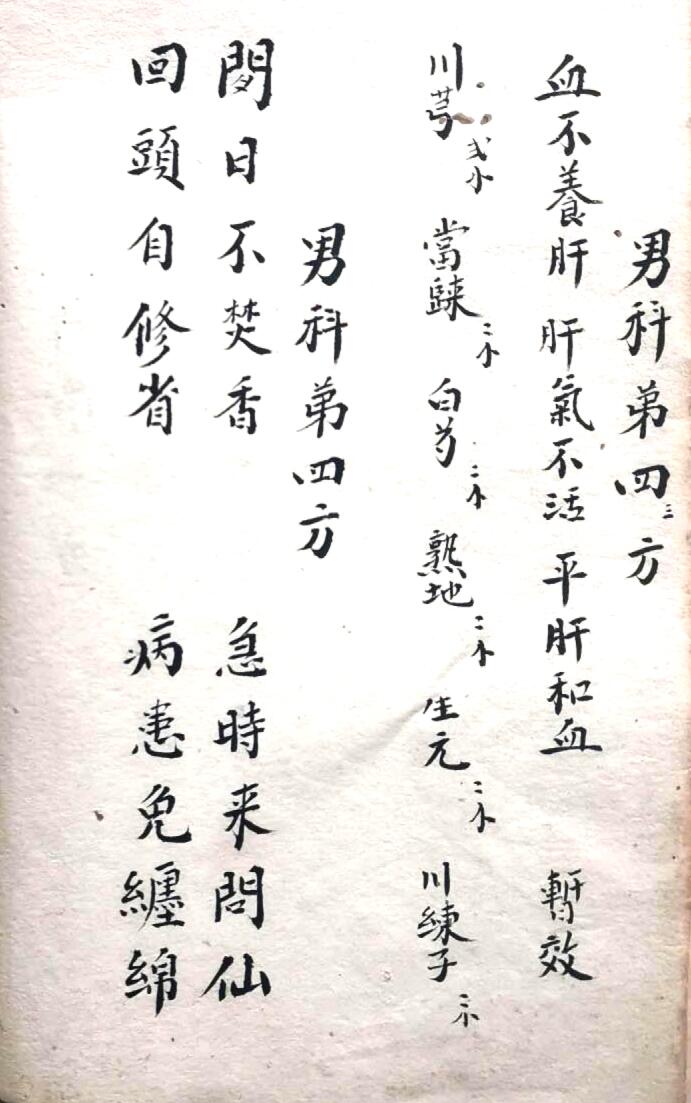 男科第四三方
血不養肝 肝氣不活 平肝和血 暫效
川芎弍小 當歸二小 白芍二小 熟地二小 生元二小 川練子二小
男科第四方
閑日不焚香 急時来問仙
回頭自修省 病患免纏綿